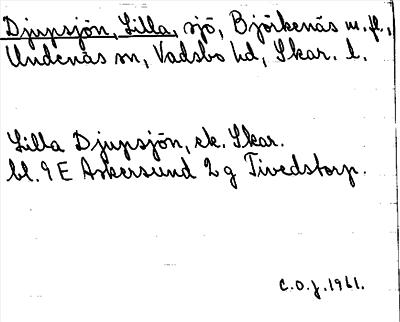 Djupsjön, Lilla, sjö, Björkenäs m.fl.,
Undenäs sn, Vadsbo hd, Skar. l.
Lilla Djupsjön, ek. Skar.
bl. 9 E Askersund 2 g Tivedstorp.
C.O.J. 1961.